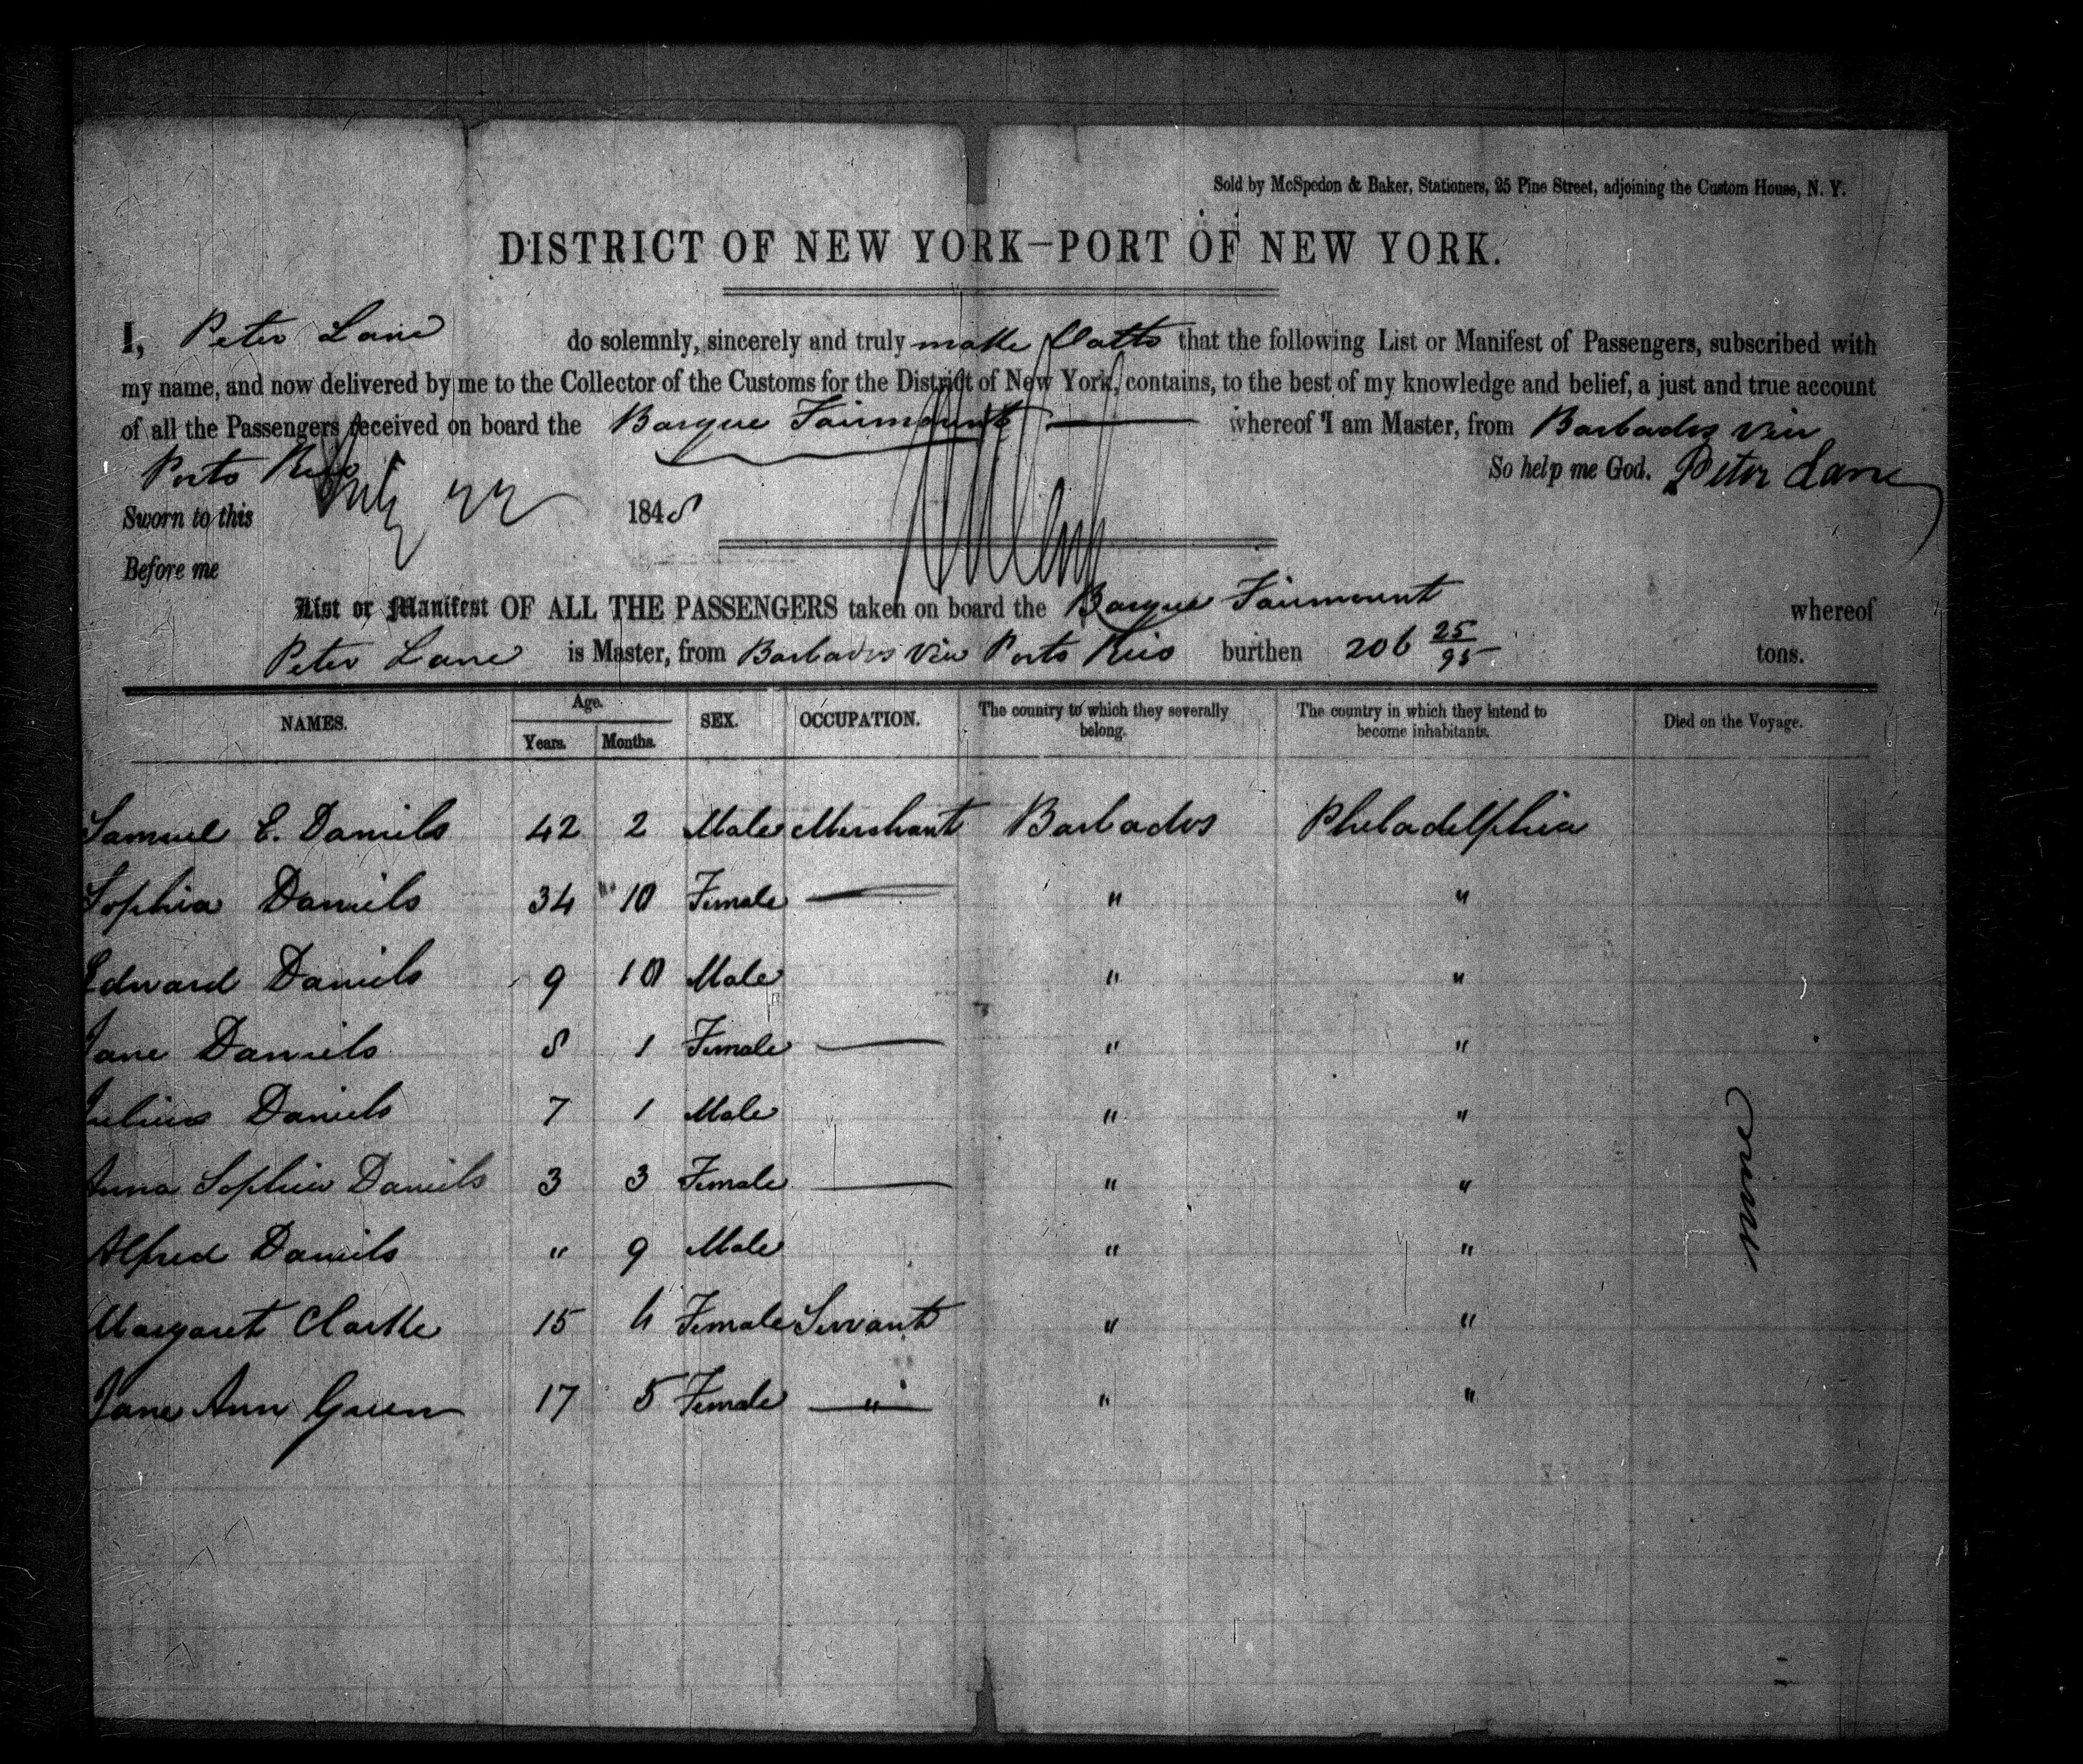 Sold by McSpedon & Baker, Stationers, 25 Pine Street, adjoining the Custom House, N. Y.
DISTRICT OF NEW YORK—PORT OF NEW YORK.
I, Peter Lane do solemnly, sincerely and truly make Oath that the following List or Manifest of Passengers, subscribed with
my name, and now delivered by me to the Collector of the Customs for the District of New York, contains, to the best of my knowledge and belief, a just and true account
of all the Passengers received on board the Barque Fairmount whereof I am Master, from Barbados via
Porto Rico So help me God. Peter Lane
Sworn to this July 22 1848
Before me
List or Manifest OF ALL THE PASSENGERS taken on board the Barque Fairmount whereof
Peter Lane is Master, from Barbados via Porto Rico burthen 206 25/95 tons.
NAMES. Age. Years. Months. SEX. OCCUPATION. The country to which they severally belong. The country in which they intend to become inhabitants. Died on the Voyage.
Samuel E. Daniels 42 2 Male Merchant Barbados Philadelphia
Sophia Daniels 34 10 Female — " "
Edward Daniels 9 10 Male " "
Jane Daniels 8 1 Female — " "
Julius Daniels 7 1 Male " "
Anna Sophia Daniels 3 3 Female — " "
Alfred Daniels " 9 Male " "
Margaret Clarke 15 4 Female Servant " "
Jane Ann Green 17 5 Female " " "